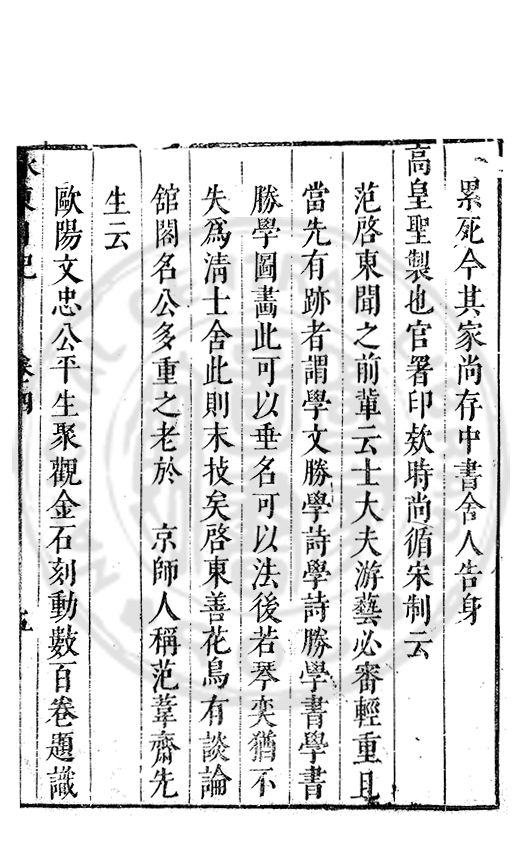 累死今其家尚存中書舍人告身
高皇聖製也官署印欵時尚循宋制云
范啓東聞之前輩云士大夫游藝必審輕重且
當先有跡者謂學文勝學詩學詩勝學書學書
勝學圖畫此可以垂名可以法後若琴奕猶不
失爲清士舍此則末技矣啓東善花鳥有談論
舘閣名公多重之老於　京師人稱范葦齋先
生云
歐陽文忠公平生聚觀金石刻動數百卷題識
東日記　卷四　五